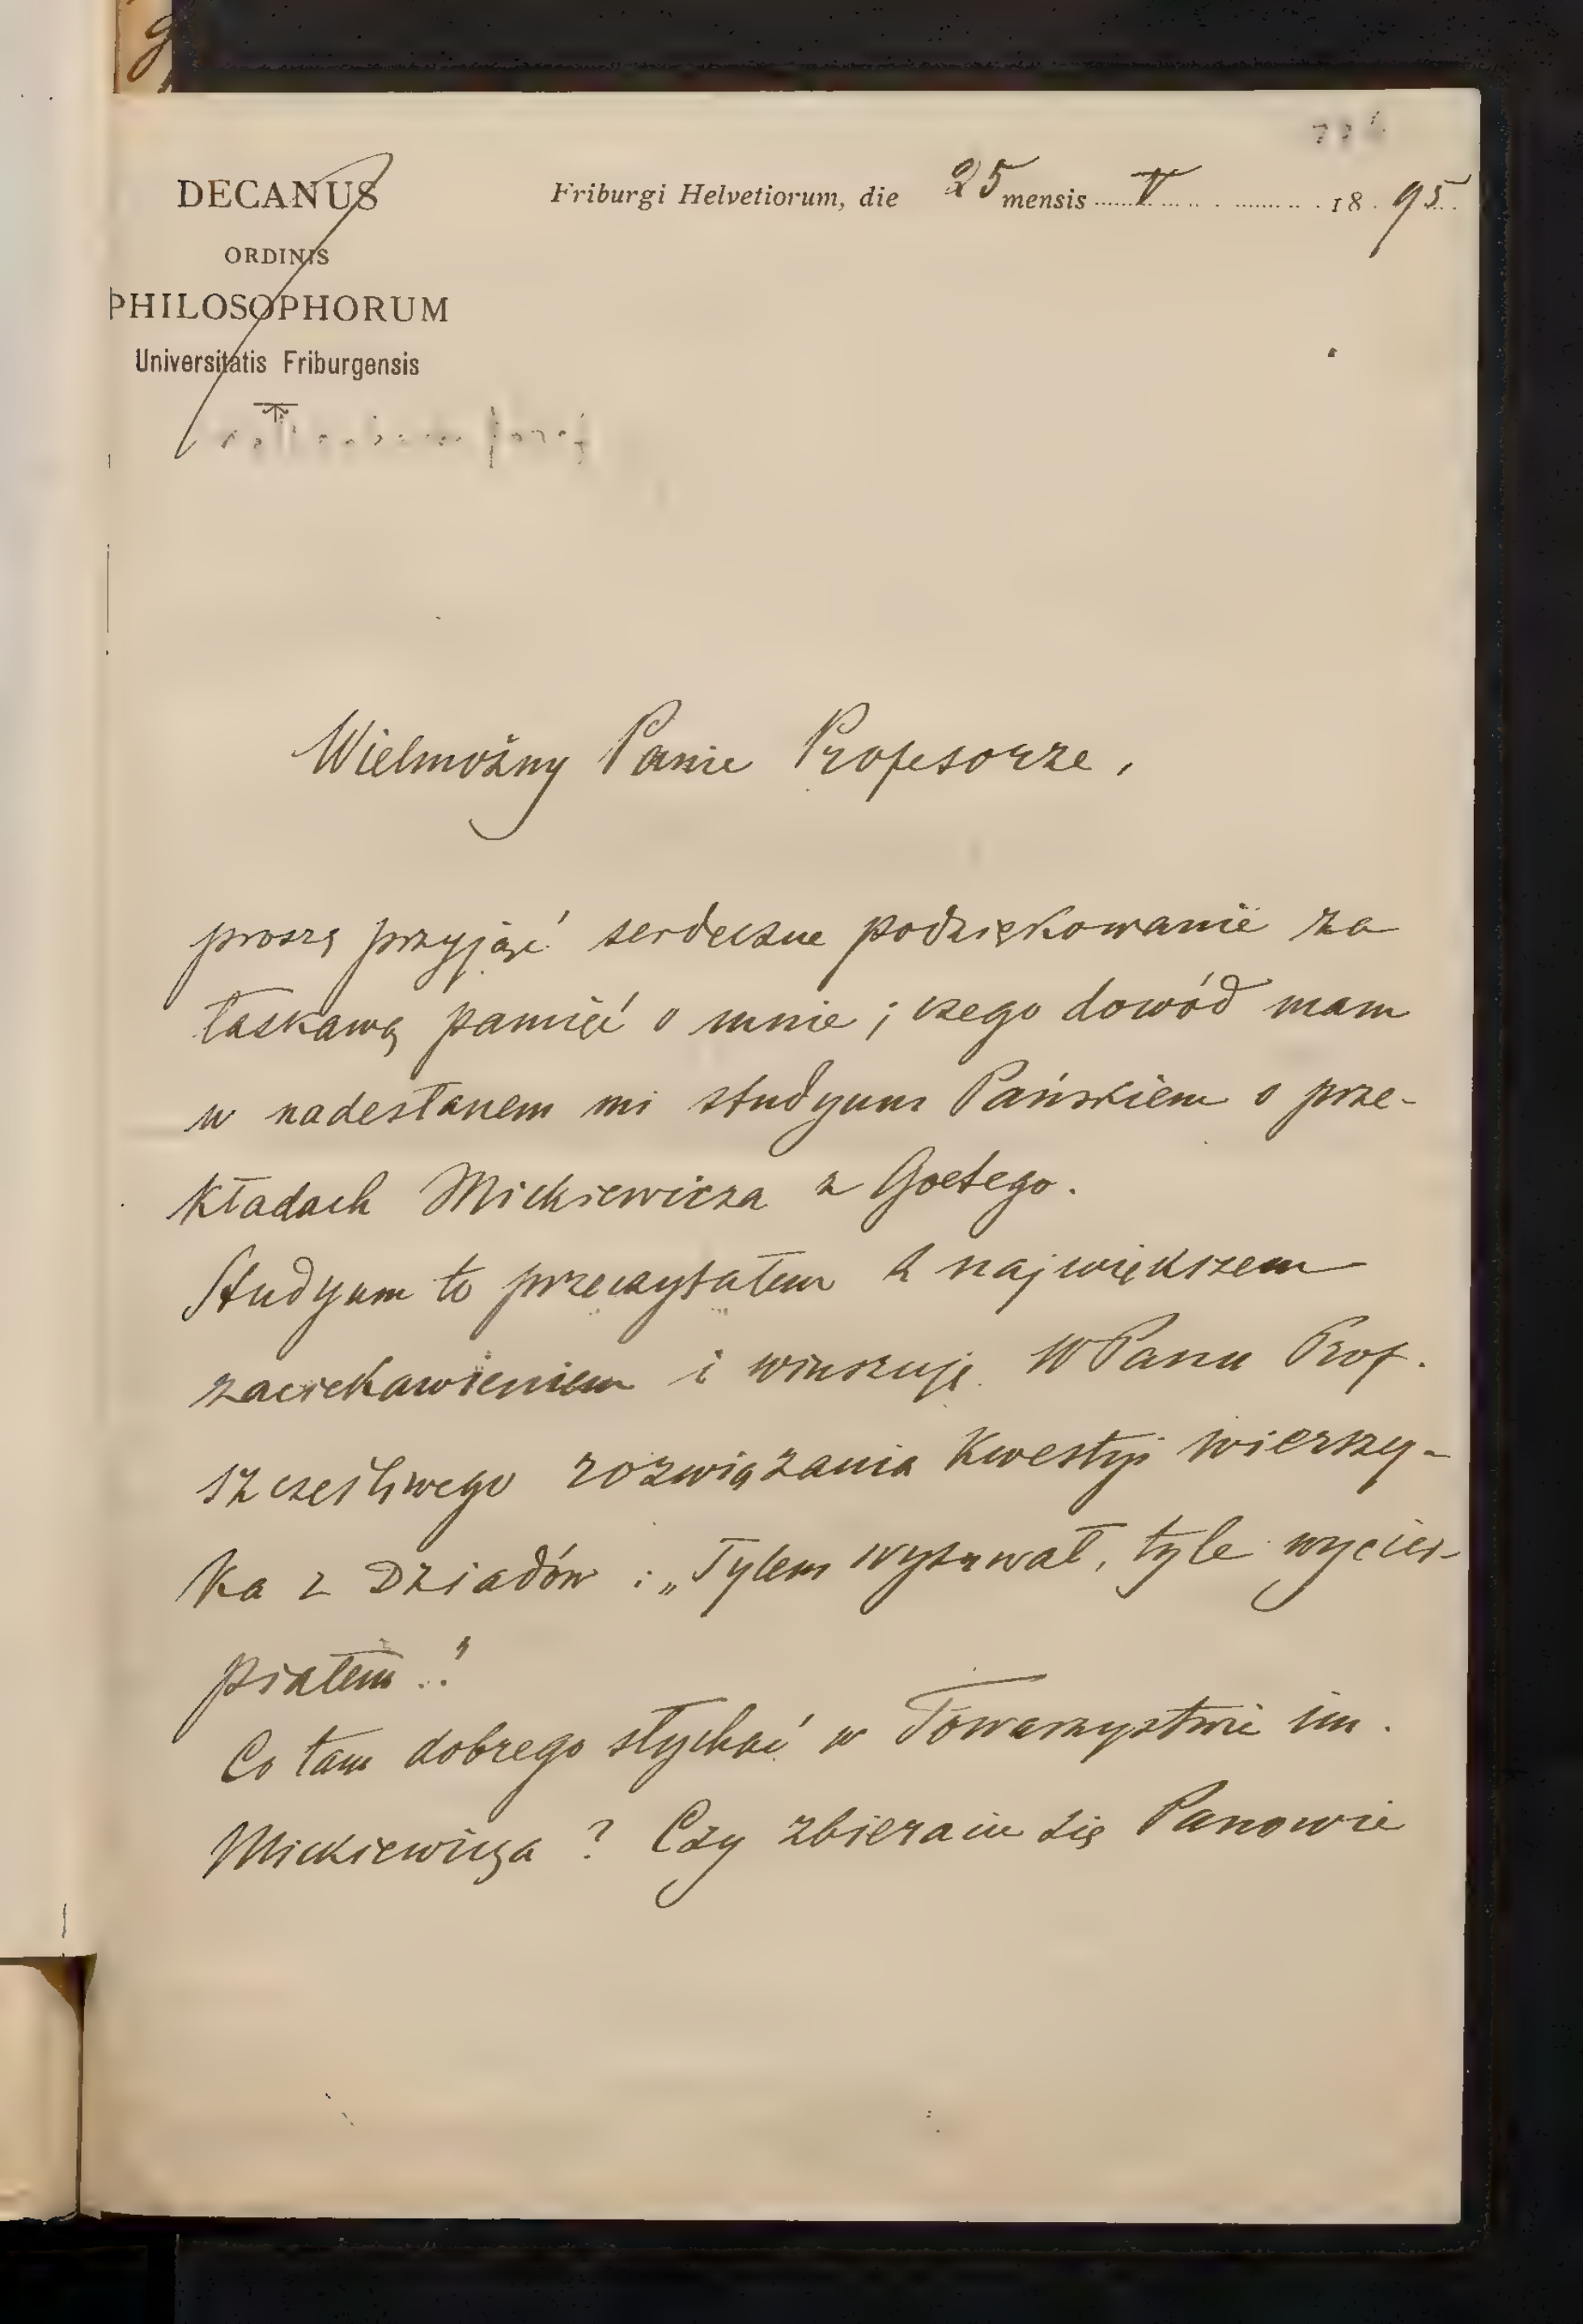 DECANUS
ORDINIS
PHILOSOPHORUM
Universitatis Friburgensis
Friburgi Helvetiorum, die 25 mensis V 1895
Wielmożny Panie Profesorze,
proszę przyjąć serdeczne podziękowanie za
łaskawą pamięć o mnie; czego dowód mam
w nadesłanem mi studyum Pańskiem o prze-
kładach Mickiewicza z Goetego.
Studyum to przeczytałem z największem
zaciekawieniem i winszuję WPanu Prof.
szczęśliwego rozwiązania kwestyi wierszy-
ka z Dziadów: „Tylem wytrwał, tyle wycier-
piałem..."
Co tam dobrego słychać w Towarzystwie im.
Mickiewicza? Czy zbieracie się Panowie